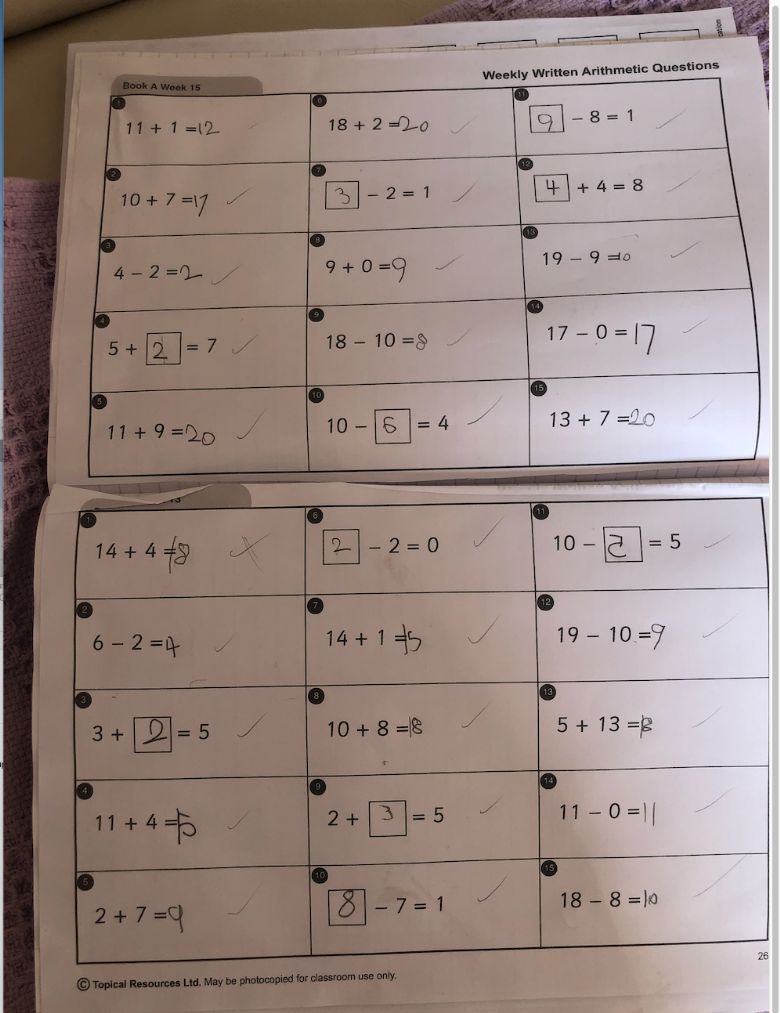 Weekly Written Arithmetic Questions
Book A Week 15
1 11 + 1 = 12
2 10 + 7 = 17
3 4 – 2 = 2
4 5 + 2 = 7
5 11 + 9 = 20
6 18 + 2 = 20
7 3 – 2 = 1
8 9 + 0 = 9
9 18 – 10 = 8
10 10 – 6 = 4
11 9 – 8 = 1
12 4 + 4 = 8
13 19 – 9 = 10
14 17 – 0 = 17
15 13 + 7 = 20
1 14 + 4 = 18
2 6 – 2 = 4
3 3 + 2 = 5
4 11 + 4 = 15
5 2 + 7 = 9
6 2 – 2 = 0
7 14 + 1 = 15
8 10 + 8 = 18
9 2 + 3 = 5
10 8 – 7 = 1
11 10 – 5 = 5
12 19 – 10 = 9
13 5 + 13 = 18
14 11 – 0 = 11
15 18 – 8 = 10
26
© Topical Resources Ltd. May be photocopied for classroom use only.